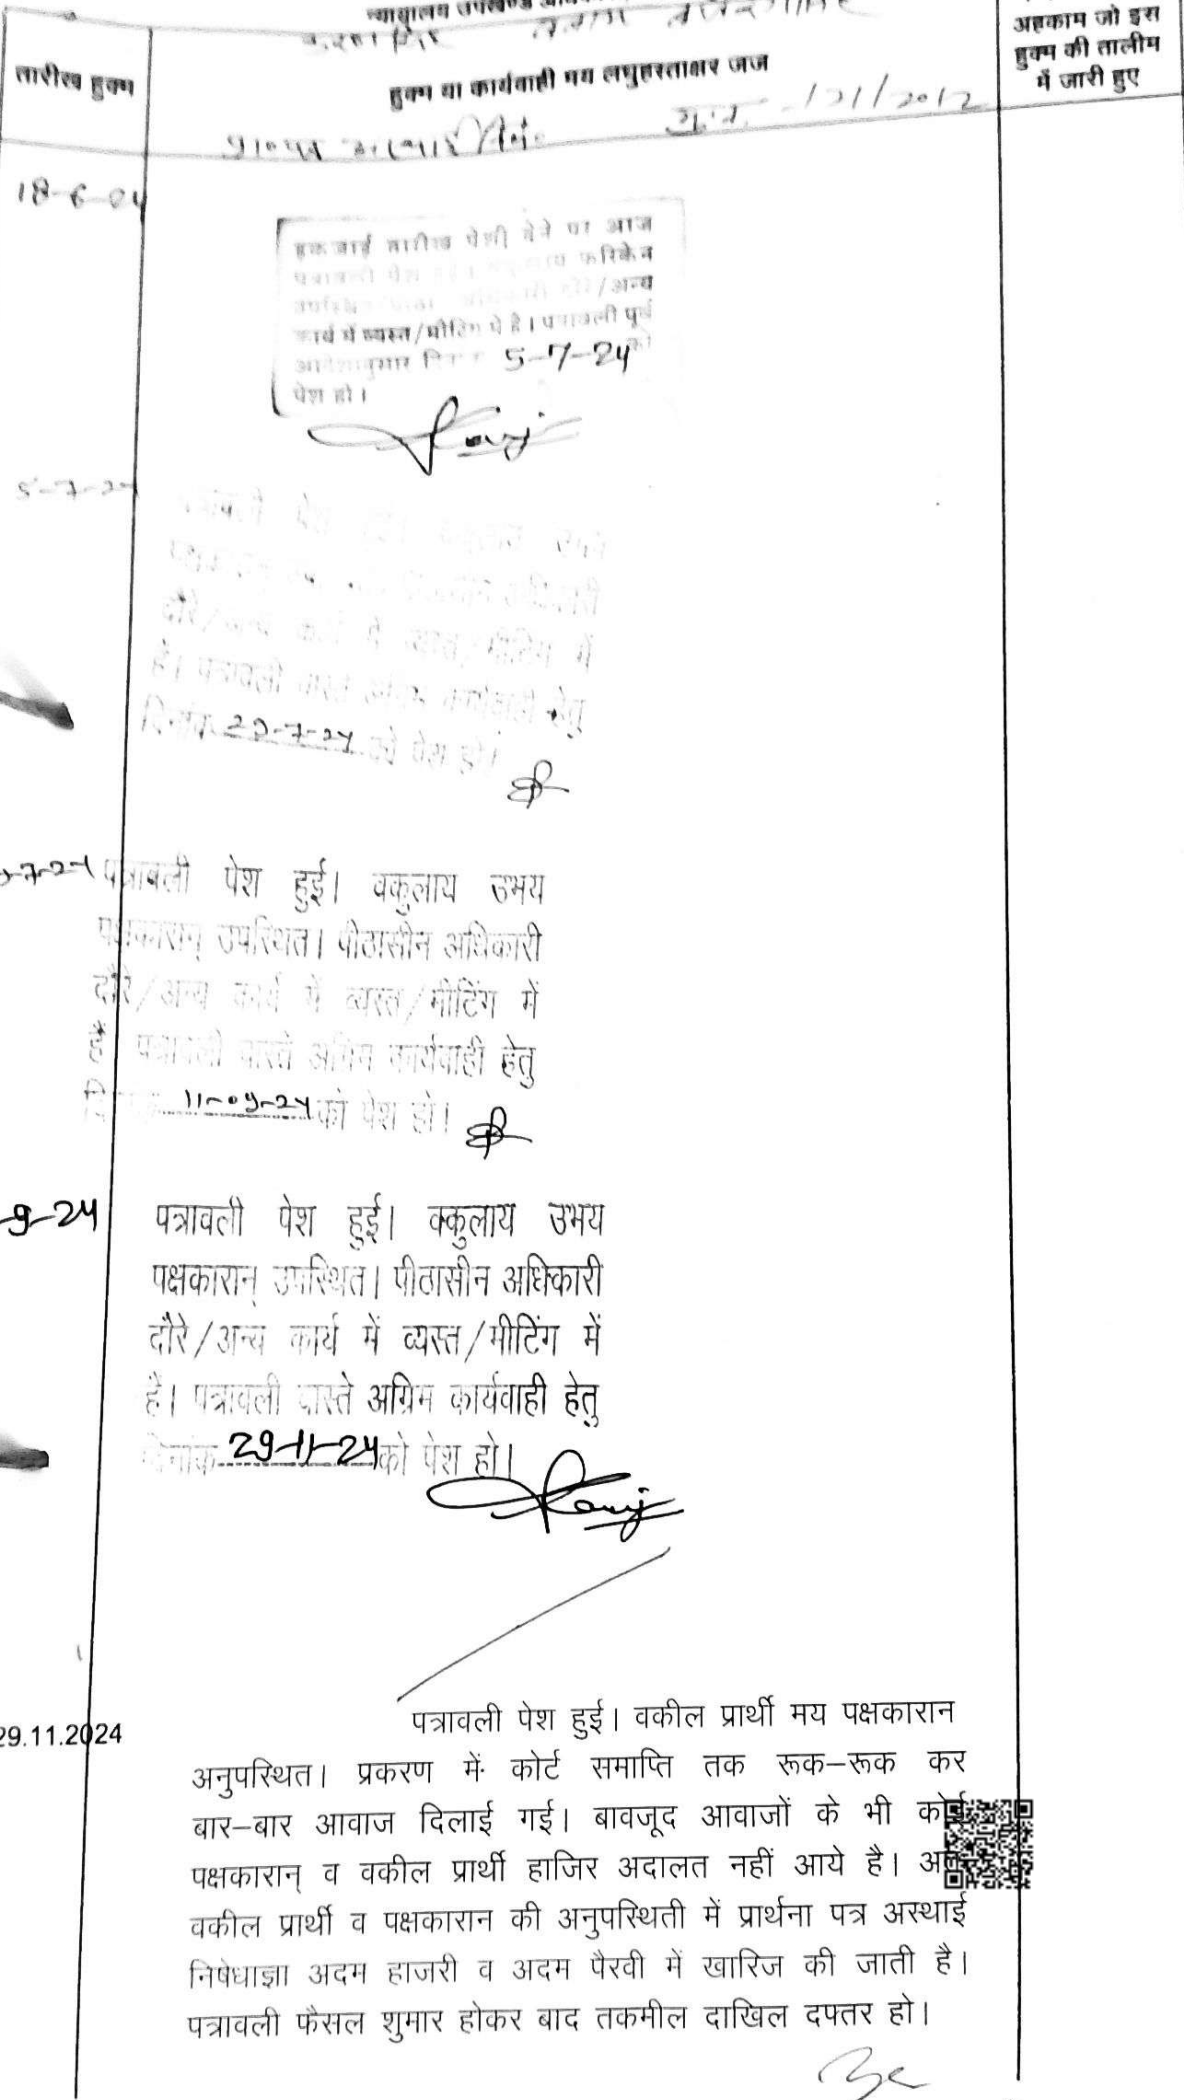 न्यायालय उपखण्ड
तारीख हुक्म
हुक्म या कार्यवाही मय लघुहस्ताक्षर जज
अहकाम जो इस
हुक्म की तालीम
में जारी हुए
121/2012
18-6-24
तारीख पेशी देने पर आज
पत्रावली पेश फरिकेन
/अन्य
कार्य में व्यस्त/मीटिंग में है। पत्रावली पूर्व
5-7-24 को
पेश हो।
5-7-24
पत्रावली पेश
दौरे/अन्य कार्य में व्यस्त/मीटिंग में
है। पत्रावली वास्ते अग्रिम कार्यवाही हेतु
दिनांक 29-7-24 को पेश हो।
-7-24 पत्रावली पेश हुई। वकुलाय उभय
पक्षकारान् उपस्थित। पीठासीन अधिकारी
दौरे/अन्य कार्य में व्यस्त/मीटिंग में
पत्रावली वास्ते अग्रिम कार्यवाही हेतु
11-09-24 को पेश हो।
-9-24 पत्रावली पेश हुई। वकुलाय उभय
पक्षकारान् उपस्थित। पीठासीन अधिकारी
दौरे/अन्य कार्य में व्यस्त/मीटिंग में
है। पत्रावली वास्ते अग्रिम कार्यवाही हेतु
दिनांक 29-11-24 को पेश हो।
29.11.2024 पत्रावली पेश हुई। वकील प्रार्थी मय पक्षकारान
अनुपस्थित। प्रकरण में कोर्ट समाप्ति तक रूक–रूक कर
बार–बार आवाज दिलाई गई। बावजूद आवाजों के भी कोई
पक्षकारान् व वकील प्रार्थी हाजिर अदालत नहीं आये है। अतः
वकील प्रार्थी व पक्षकारान की अनुपस्थिती में प्रार्थना पत्र अस्थाई
निषेधाज्ञा अदम हाजरी व अदम पैरवी में खारिज की जाती है।
पत्रावली फैसल शुमार होकर बाद तकमील दाखिल दफ्तर हो।